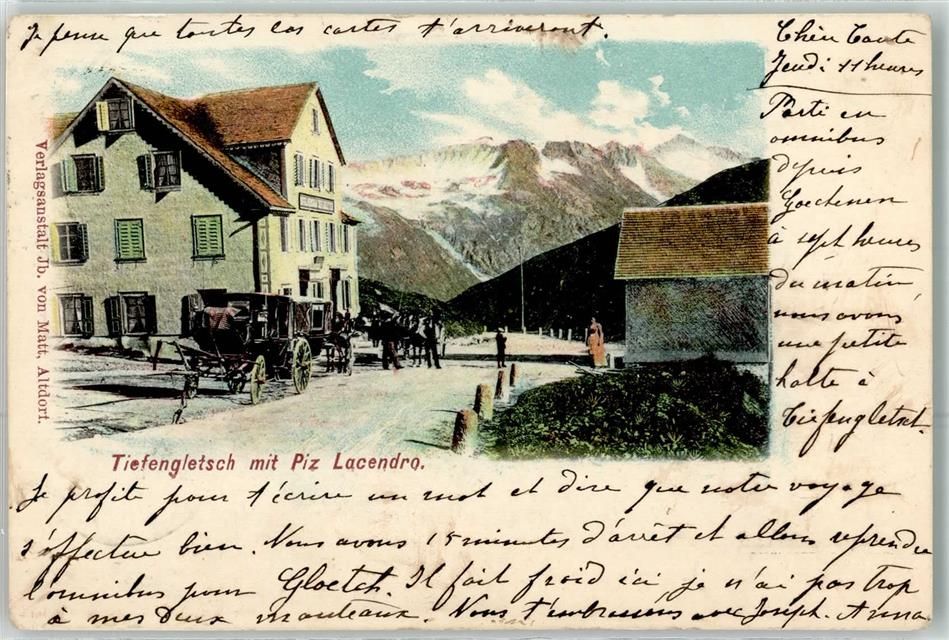 Je pense que toutes les cartes t'arriveront.
Chère Tante
Jeudi 11 heures
Parti en
omnibus
depuis
Goechenen
à sept heures
du matin
nous avons
une petite
halte à
Tiefengletsch.
Verlagsanstalt Jb. von Matt, Altdorf.
Tiefengletsch mit Piz Lacendro.
Je profite pour t'écrire un mot et dire que notre voyage
s'effectue bien. Nous avons 15 minutes d'arrêt et allons reprendre
l'omnibus pour Gloetch. Il fait froid ici je n'ai pas trop
à mes deux manteaux. Nous t'embrassons avec Joseph. Anna